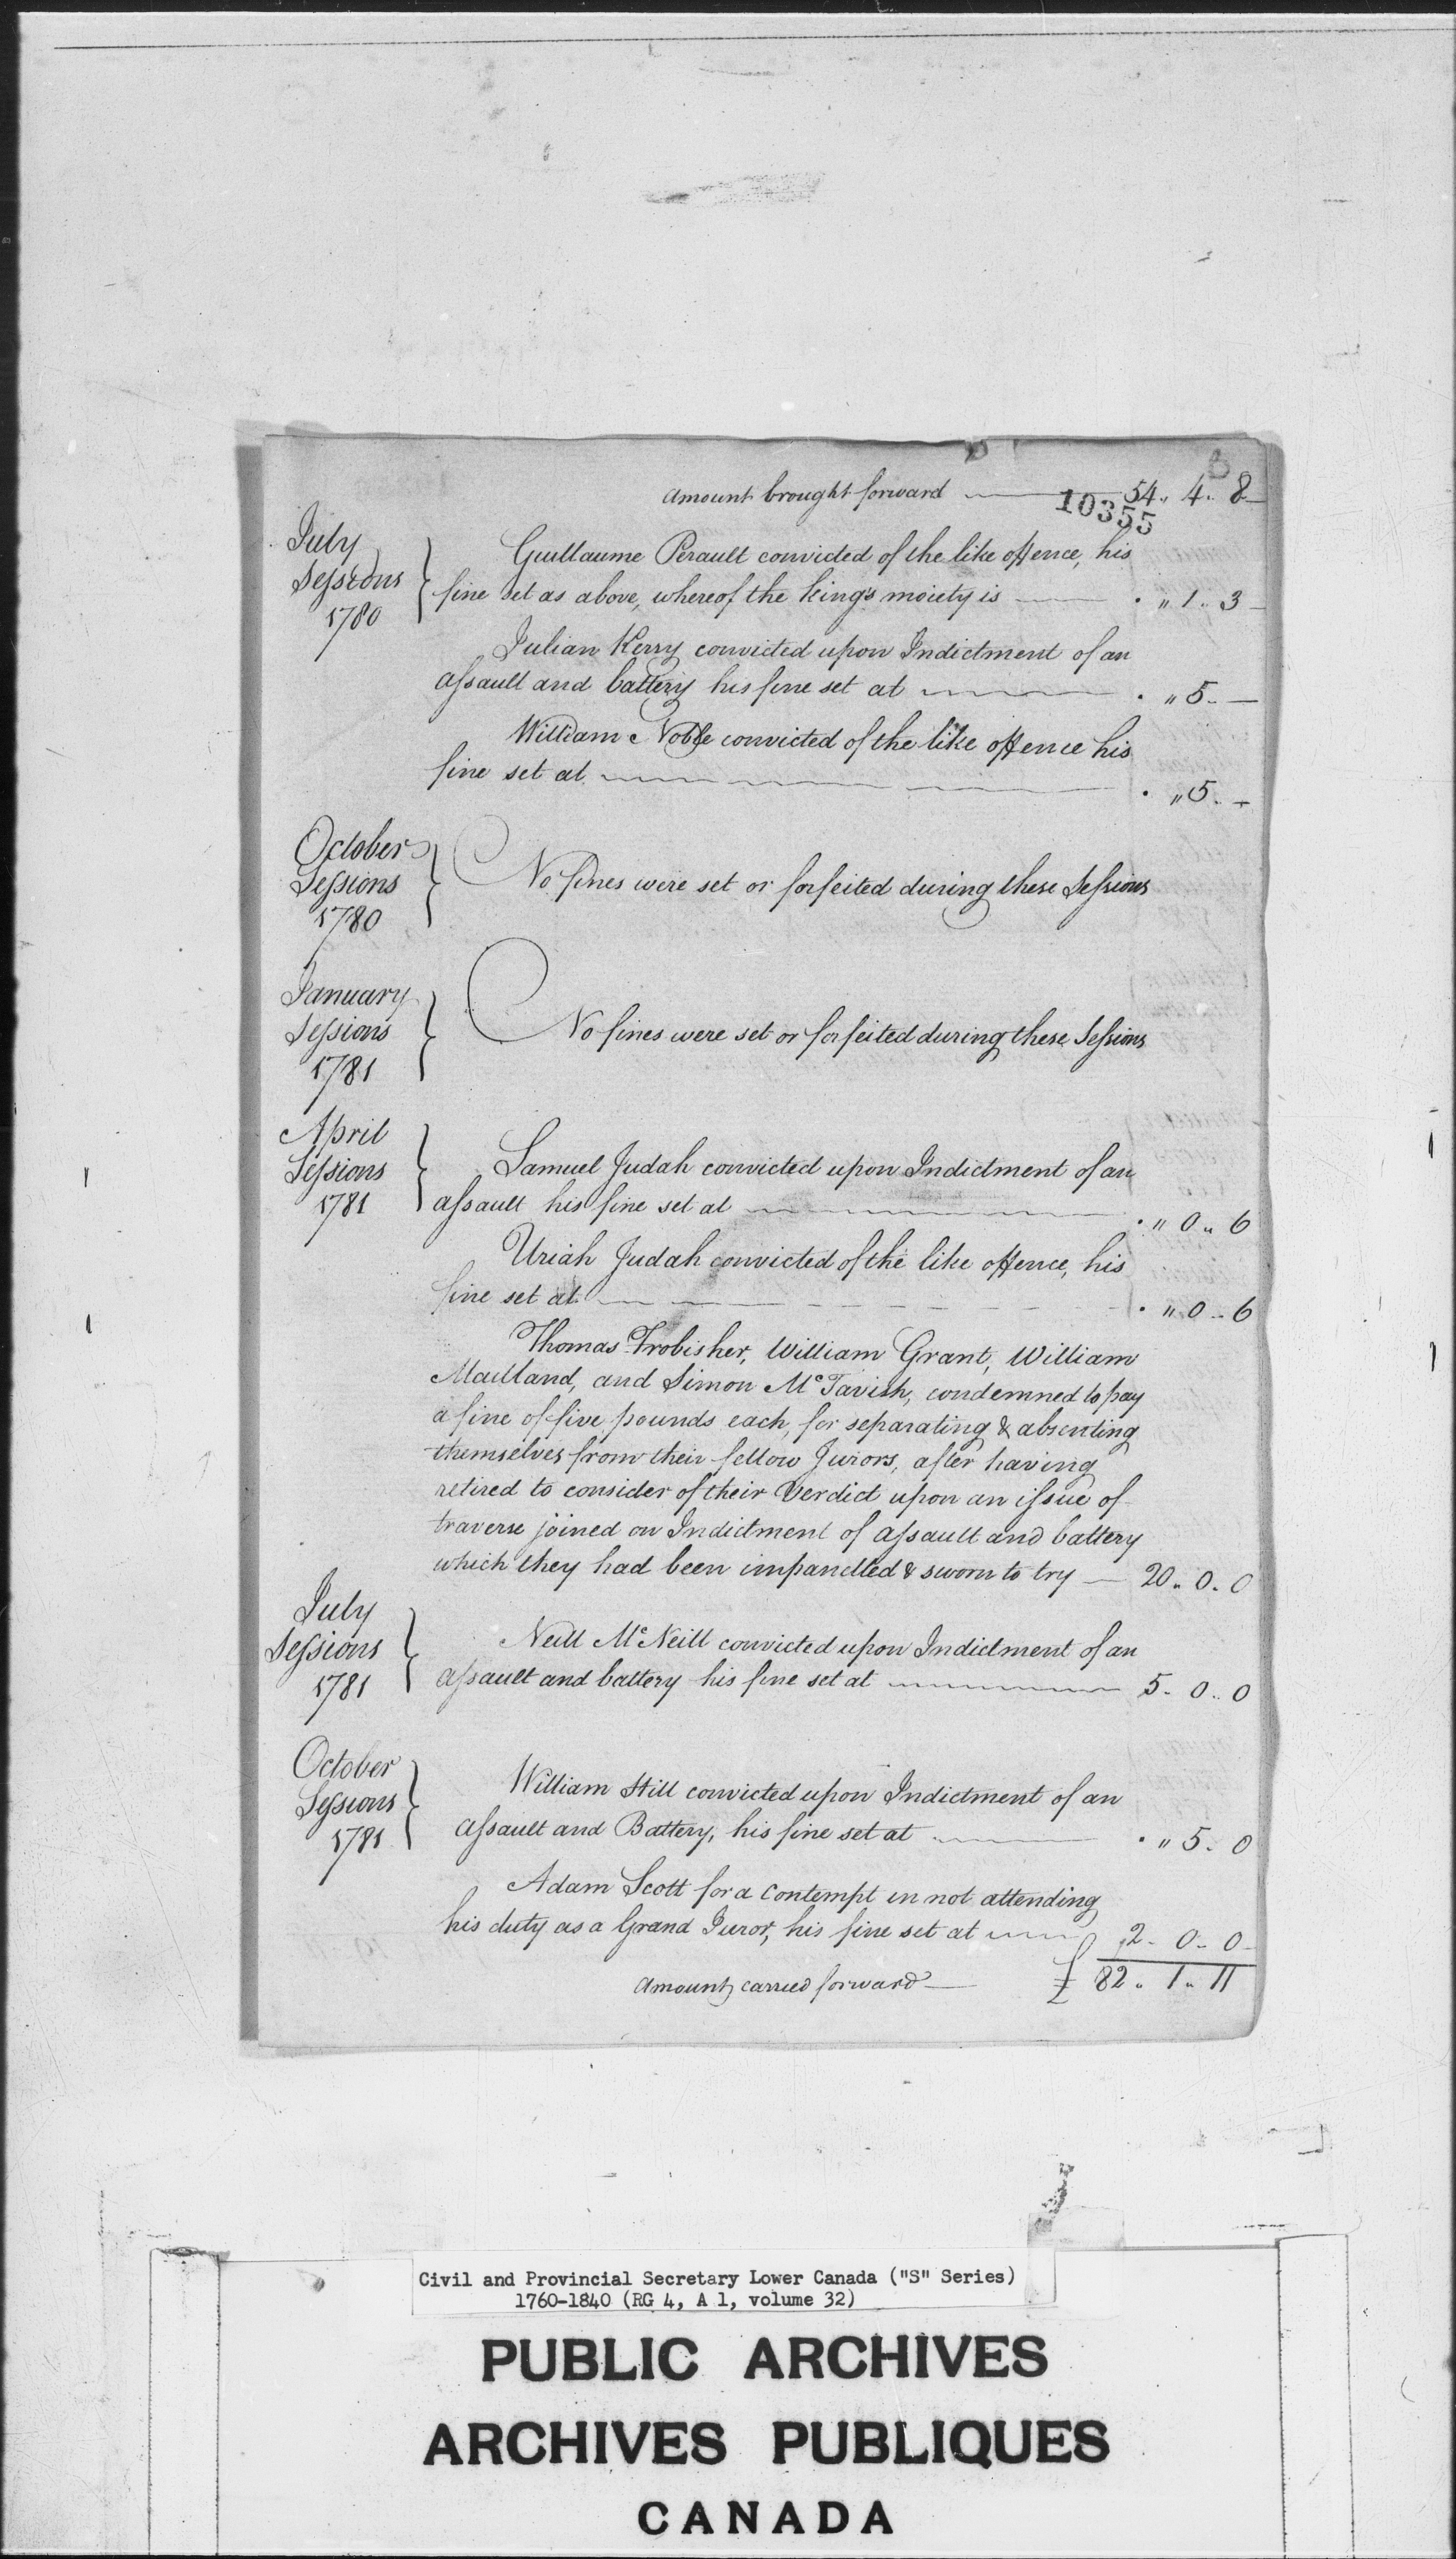 Amount brought forward — 54 „ 4 „ 8 —
10355
July
Sessions
1780
Guillaume Perault convicted of the like offence, his
fine set as above, whereof the king's moiety is — . „ 1 „ 3 —
Julian Kerry convicted upon Indictment of an
assault and battery his fine set at — . „ 5 „ —
William Noble convicted of the like offence his
fine set at — . „ 5 „ —
October
Sessions
1780
No fines were set or forfeited during these Sessions
January
Sessions
1781
No fines were set or forfeited during these Sessions
April
Sessions
1781
Samuel Judah convicted upon Indictment of an
assault his fine set at — . „ 0 „ 6
Uriah Judah convicted of the like offence, his
fine set at — . „ 0 „ 6
Thomas Frobisher, William Grant, William
Maitland, and Simon McTavish, condemned to pay
a fine of five pounds each, for separating & absenting
themselves from their fellow Jurors, after having
retired to consider of their Verdict upon an issue of
traverse joined on Indictment of assault and battery
which they had been impanelled & sworn to try — 20 „ 0 „ 0
July
Sessions
1781
Neill McNeill convicted upon Indictment of an
assault and battery his fine set at — 5 „ 0 „ 0
October
Sessions
1781
William Hill convicted upon Indictment of an
assault and Battery, his fine set at — . „ 5 „ 0
Adam Scott for a Contempt in not attending
his duty as a Grand Juror, his fine set at — 2 „ 0 „ 0
Amount carried forward — £ 82 „ 1 „ 11
Civil and Provincial Secretary Lower Canada ("S" Series)
1760-1840 (RG 4, A 1, volume 32)
PUBLIC ARCHIVES
ARCHIVES PUBLIQUES
CANADA